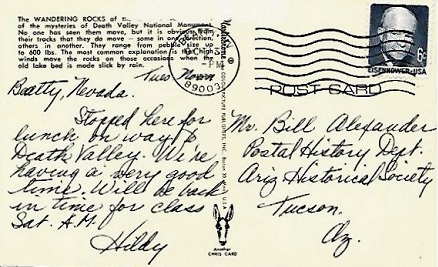 The WANDERING ROCKS of
of the mysteries of Death Valley National Monument.
No one has seen them move, but it is obvious from
their tracks that they do move — some in one direction,
others in another. They range from pebble size up
to 600 lbs. The most common explanation is that high
winds move the rocks on those occasions when the
old lake bed is made slick by rain.
Tues Noon
Beatty, Nevada.
Stopped here for
lunch on way to
Death Valley. We're
having a very good
time. Will be back
in time for class
Sat. A.M.
Hildy
PM
89003
Another
CHRIS CARD
EISENHOWER·USA
6c
POST CARD
Mr. Bill Alexander
Postal History Dept.
Ariz Historical Society
Tucson,
Az.